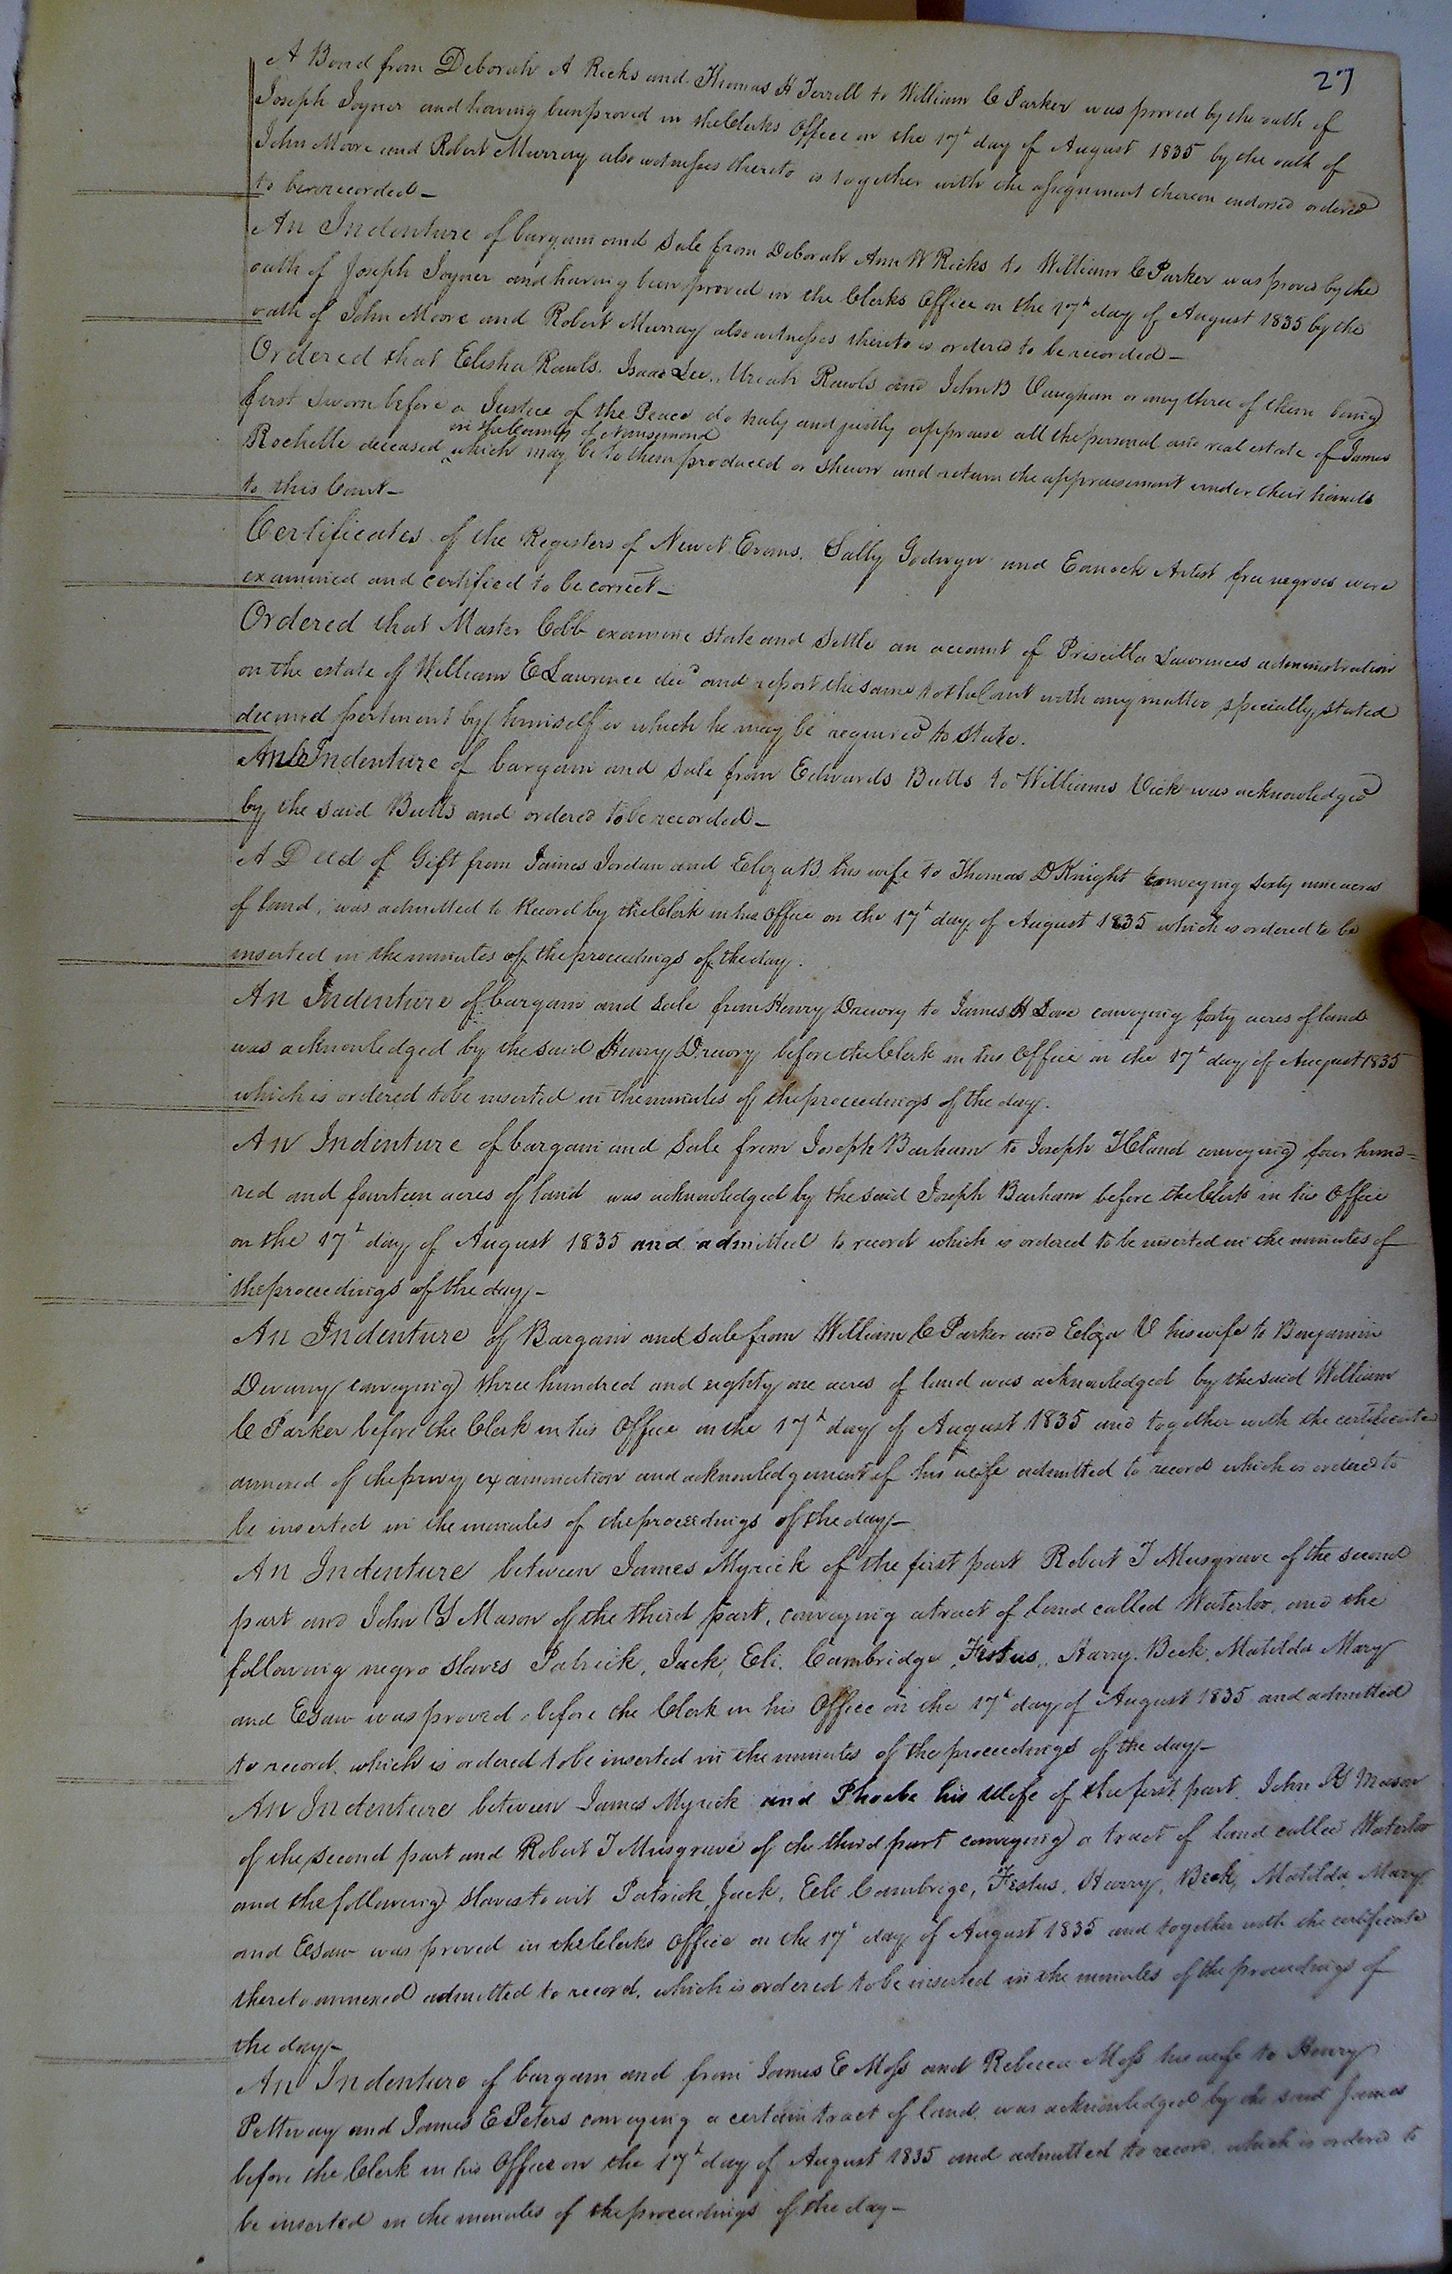 27
A Bond from Deborah A Ricks and Thomas H Terrell to William C Parker was proved by the oath of
Joseph Joyner and having been proved in the Clerks Office on the 17th day of August 1835 by the oath of
John Moore and Robert Murray also witnesses thereto is together with the assignment thereon endorsed ordered
to be recorded_
An Indenture of bargain and sale from Deborah Ann W Ricks to William C Parker was proved by the
oath of Joseph Joyner and having been proved in the Clerks Office on the 17th day of August 1835 by the
oath of John Moore and Robert Murray also witnesses thereto is ordered to be recorded_
Ordered that Elisha Rawls, Isaac Lee, Uriah Rawls and John B Vaughan or any three of them being
first sworn before a Justice of the Peace do truly and justly appraise all the personal and real estate of James
in the County of Nansemond
Rochelle deceased ^ which may be to them produced or shewn and return the appraisement under their hands
to this Court_
Certificates of the Registers of Newit Evans, Sally Godwyn and Eanock Artist free negroes were
examined and certified to be correct_
Ordered that Master Cobb examine state and settle an account of Priscilla Lawrences administration
on the estate of William E Lawrence decd and report the same to the Court with any matter specially stated
deemed pertinent by himself or which he may be required to state.
An Indenture of bargain and sale from Edwards Butts to Williams Vick was acknowledged
by the said Butts and ordered to be recorded_
A Deed of Gift from James Jordan and Eliza B his wife to Thomas D Knight conveying sixty nine acres
of land, was admitted to Record by the Clerk in his Office on the 17th day of August 1835 which is ordered to be
inserted in the minutes of the proceedings of the day.
An Indenture of bargain and sale from Henry Drewry to James H Love conveying forty acres of land
was acknowledged by the said Henry Drewry before the Clerk in his Office on the 17th day of August 1835
which is ordered to be inserted in the minutes of the proceedings of the day.
An Indenture of bargain and sale from Joseph Barham to Joseph T Claud conveying four hund=
red and fourteen acres of land was acknowledged by the said Joseph Barham before the Clerk in his Office
on the 17th day of August 1835 and admitted to record which is ordered to be inserted in the minutes of
the proceedings of the day_
An Indenture of Bargain and sale from William C Parker and Eliza V his wife to Benjamin
Devany conveying three hundred and eighty one acres of land was acknowledged by the said William
C Parker before the Clerk in his Office on the 17th day of August 1835 and together with the certificate
annexed of the privy examination and acknowledgement of his wife admitted to record which is ordered to
be inserted in the minutes of the proceedings of the day_
An Indenture between James Myrick of the first part Robert T Musgrave of the second
part and John Y Mason of the third part, conveying a tract of land called Waterloo, and the
following negro slaves Patrick, Jack, Eli, Cambridge, Festus, Harry, Beck, Matilda Mary
and Esaw was proved before the Clerk in his Office on the 17th day of August 1835 and admitted
to record which is ordered to be inserted in the minutes of the proceedings of the day_
An Indenture between James Myrick and Phoebe his wife of the first part, John Y Mason
of the second part and Robert T Musgrave of the third part conveying a tract of land called Waterloo
and the following slaves to wit Patrick, Jack, Eli Cambrige, Festus, Harry, Beck, Matilda, Mary
and Esaw was proved in the Clerks Office on the 17th day of August 1835 and together with the certificate
thereto annexed admitted to record, which is ordered to be inserted in the minutes of the proceedings of
the day_
An Indenture of bargain and from James E Moss and Rebecca Moss his wife to Henry
Pettway and James E Peters conveying a certain tract of land was acknowledged by the said James
before the Clerk in his Office on the 17th day of August 1835 and admitted to record which is ordered to
be inserted in the minutes of the proceedings of the day_